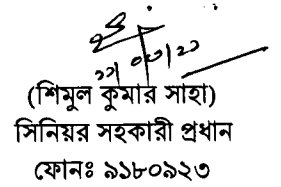 (শিমুল কুমার সাহা)
সিনিয়র সহকারী প্রধান
ফোনঃ ৯১৮০৯২৩